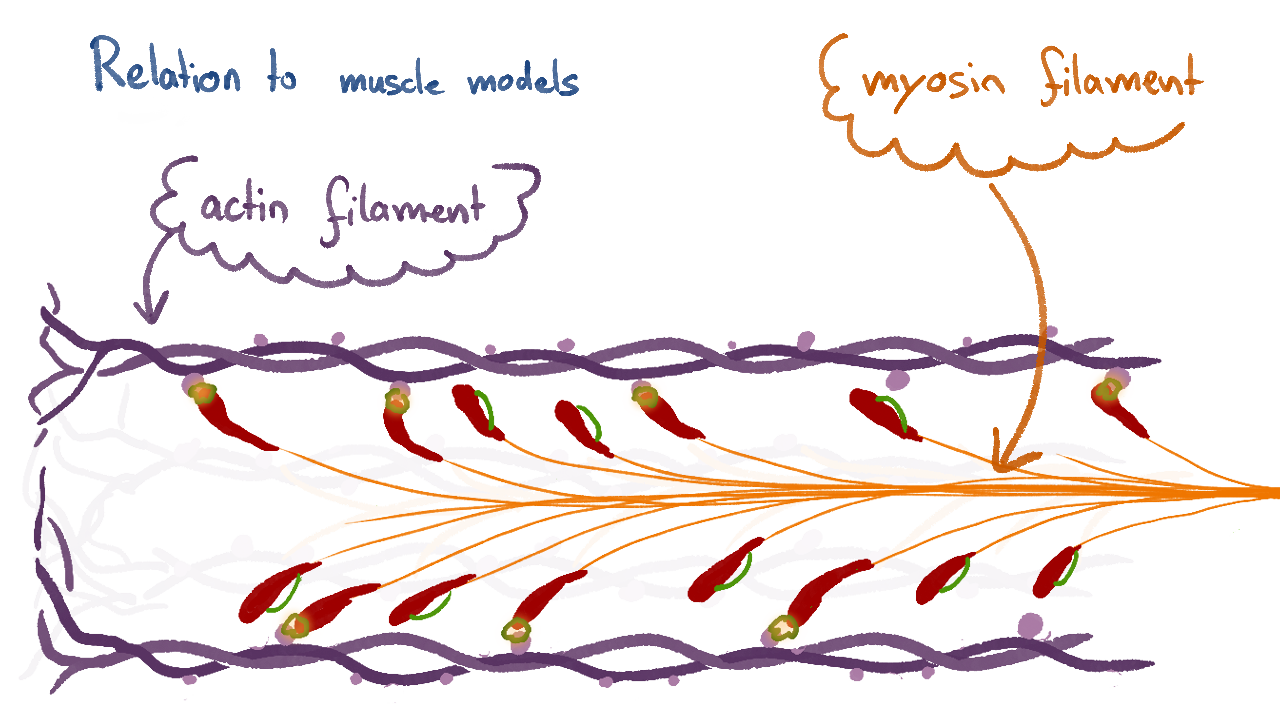 Relation to muscle models
myosin filament
actin filament